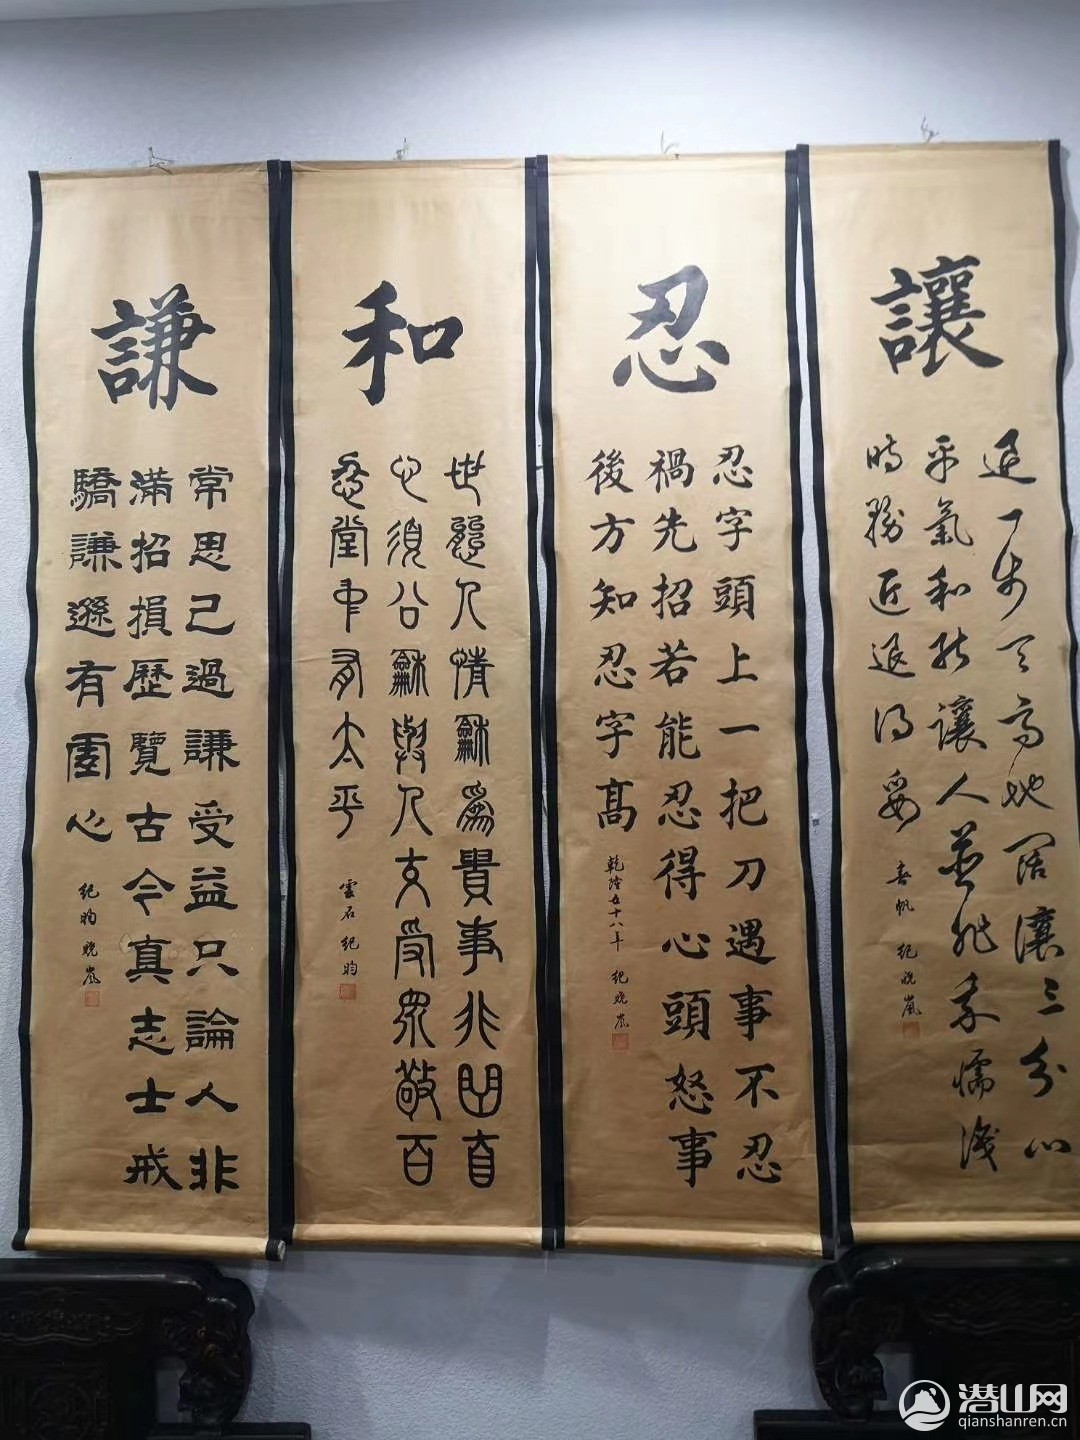 讓
退一步天高地闊讓三分心
平氣和能讓人並非柔懦識
時務進退得妥
春帆 紀曉嵐
忍
忍字頭上一把刀遇事不忍
禍先招若能忍得心頭怒事
後方知忍字高
乾隆五十八年 紀曉嵐
和
世態人情龢為貴事非曲直
心須公龢與人交受眾敬百
忍堂中有太平
雲石 紀昀
謙
常思己過謙受益只論人非
滿招損歷覽古今真志士戒
驕謙遜有心
紀昀 曉嵐
潜山网
qianshanren.cn